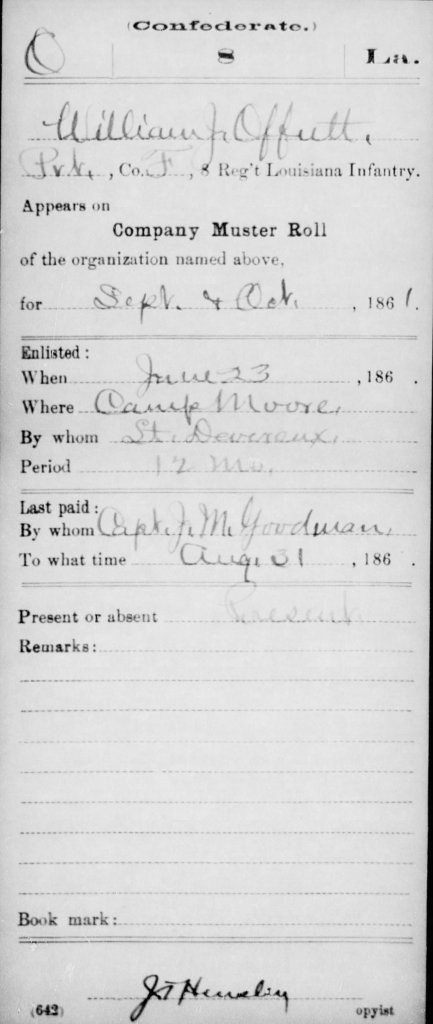 (Confederate.)
O 8 La.
William J. Offutt.
Pvt., Co. F, 8 Reg't Louisiana Infantry.
Appears on
Company Muster Roll
of the organization named above,
for Sept. & Oct. , 1861.
Enlisted:
When June 23 , 186 .
Where Camp Moore.
By whom Lt. Devereux.
Period 12 Mo.
Last paid:
By whom Capt. J. M. Goodman.
To what time Aug. 31 , 186 .
Present or absent Present.
Remarks:
Book mark:
J T Hensley
(642) opyist